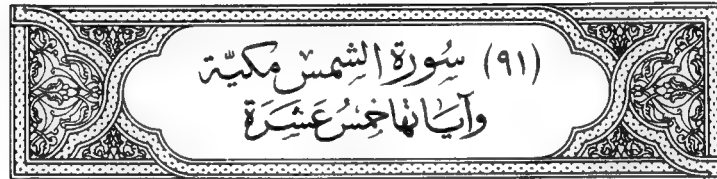 (٩١) سُورَة الشمس مكيّة
وآياتها خمسُ عَشرَة